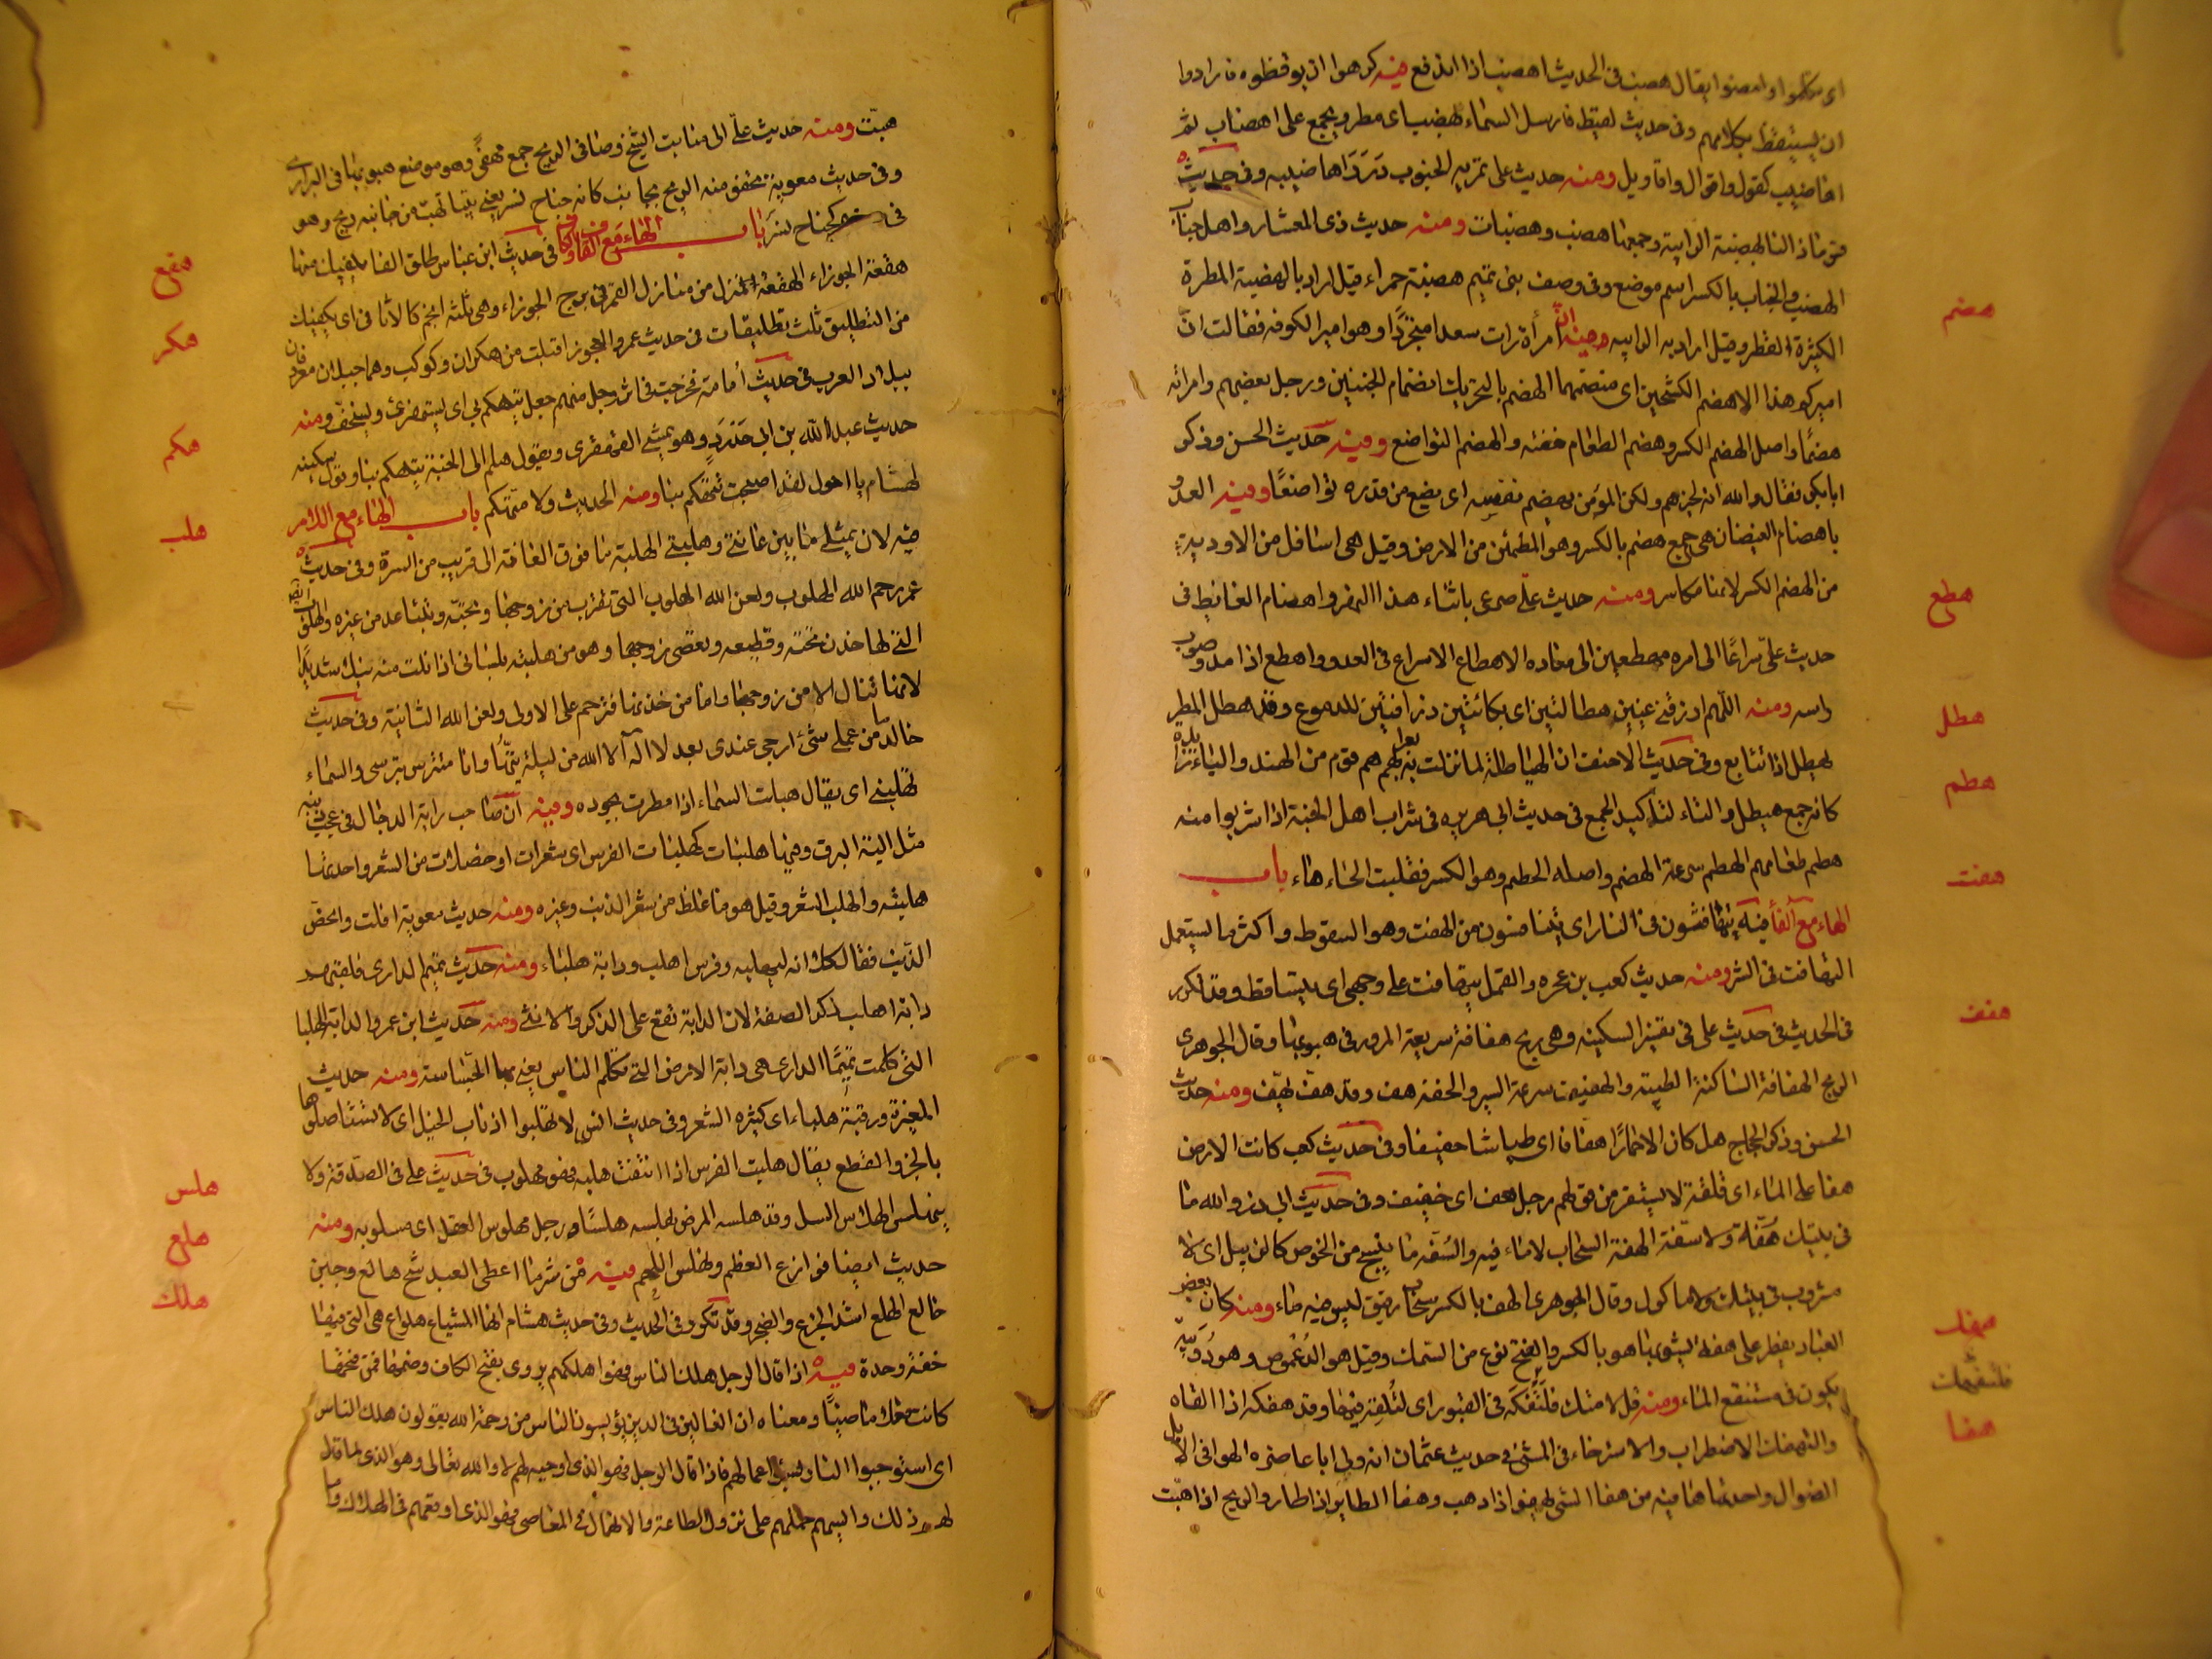 اى تكلموا وامضوا يقال هضب فى الحديث واهضب اذا اندفع فيه كرهوا ان يوقظوه فارادوا
ان يستيقظ بكلامهم وفى حديث لقيط فارسل السماء بهضب اى مطر ويجمع على اهضاب ثم
اهاضيب كقول واقوال واقاويل ومنه حديث على تمريه الجنوب درر اهاضيبه وفى حديث
الهضبة الرابية وجمعها هضب وهضبات ومنه حديث ذى المعشار واهل جناب
الهضب والجناب بالكسر اسم موضع وفى وصف بنى تميم هضبة حمراء قيل اراد بالهضبة المطرة
الكثيرة القطر وقيل اراد به الرابيه وفيه ان امرأة رأت سعدا متجردا وهو امير الكوفه فقالت ان
اميركم هذا لاهضم الكشحين اى منضمهما الهضم بالتحريك انضمام الجنبين ورجل بعضهم وامراته
هضما واصل الهضم الكسر وهضم الطعام خفته والهضم التواضع ومنه حديث الحسن وذكر
ابابكر فقال والله انه لخيرهم ولكن المؤمن يهضم نفسه اى يضع من قدره تواضعا ومنه العدو
باهضام الغيضان هى جمع هضم بالكسر وهو المطمئن من الارض وقيل هى اسافل من الاودية
من الهضم الكسر لانها مكاسر ومنه حديث على صرعى باثناء هذا النهر واهضام الغائط فى
هضم
حديث على سراعا الى امره مهطعين الى معاده الاهطاع الاسراع فى العدو واهطع اذا مد وصوب
هطع
راسه ومنه اللهم ارزقنى عينين هطالتين اى بكائتين ذرافتين للدموع وقد هطل المطر
هطل
يهطل اذا تتابع وفى حديث الاحنف ان الهياطلة لما نزلت به بعل بهم هم قوم من الهند والياء زائدة
كانه جمع هيطل والتاء لتاكيد الجمع فى حديث ابى هريره فى شراب اهل الجنة اذا شربوا منه
هطم
هطم طعامهم الهطم سرعة الهضم واصله الحطم وهو الكسر فقلبت الحاء هاء باب
الهاء مع الفاء فيه يتهافتون فى النار اى يتساقطون من الهفت وهو السقوط واكثر ما يستعمل
هفت
التهافت فى الشر ومنه حديث كعب بن عجره والقمل يتهافت على وجهى اى يتساقط وقد تكرر
فى الحديث فى حديث على فى تفسير السكينه وهى ريح هفافة سريعة المرور فى هبوبها وقال الجوهرى
هفف
الريح الهفافة الساكنة الطيبة والهفيف سرعة السير والخفة هف وقد هف يهف ومنه حديث
الحسن وذكر الحجاج هل كان الا حمارا هفافا اى طياشا خفيفا وفى حديث كعب كانت الارض
هفا على الماء اى قلقة لا يستقر من قولهم رجل هف اى خفيف وفى حديث ابى ذر والله ما
فى بيتك هفة ولا سفة الهفة السحاب لا ماء فيه والسفة ما ينسج من الخوص كالزبيل اى لا
مشروب فى بيتك ولا ماكول وقال الجوهرى الهف بالكسر سحاب رقيق ليس فيه ماء ومنه كان بعض
العباد يفطر على هفة يشويها هو بالكسر والفتح نوع من السمك وقيل هو الدعموص وهو دويبة
يكون فى مستنقع الماء ومنه قل لامتك فلتهفكه فى القبور اى لتلقه فيها وقد هفكه اذا القاه
هفك
فلتهفكه
والتهفك الاضطراب والاسترخاء فى المشى فى حديث عثمان انه ولى ابا عاضره الهوافى الابل
هفا
الضوال واحدتها هافية من هفا الشى يهفو اذا ذهب وهفا الطاير اذا طار والريح اذا هبت
هبت ومنه حديث على الى منابت الشيح ومهافى الريح جمع مهفى وهو موضع هبوبها فى البرارى
وفى حديث معوية تخفق منه الريح بجانب كانه جناح نسر يعنى بيتا تهب من جانبه ريح وهو
فى كجناح نسر باب الهاء مع القاف والكاف فى حديث ابن عباس طلق الفا يكفيك منها
هقعة الجوزاء الهقعة المنزل من منازل القمر فى برج الجوزاء وهى ثلثة انجم كالاثافى اى يكفيك
هقع
من التطليق ثلث تطليقات فى حديث عمر والعجوز اقبلت من هكران وكوكب وهما جبلان معروفان
هكر
ببلاد العرب فى حديث أسامة فخرجت فى اثر رجل منهم جعل يتهكم بى اى يستهزئ ويستخف ومنه
هكم
حديث عبد الله بن ابى حدرد وهو يمشى القهقرى ويقول هلم الى الجنة يتهكم بنا وقول سكينه
لهشام يا احول لقد اصبحت تتهكم بنا ومنه الحديث ولا متهكم باب الهاء مع اللام
فيه لان يمتلى ما بين عانتى وهلبتى الهلبة ما فوق العانة الى قريب من السرة وفى حديث
هلب
عمر رحم الله الهلوب ولعن الله الهلوب التى تقرب من زوجها وتحبه وتتباعد من غيره والهلوب ايضا
التى لها خدن تحبه وتطيعه وتعصى زوجها وهو من هلبته بلسانى اذا نلت منه نيلا شديدا
لانها تنال اما من زوجها واما من خدنها فترحم على الاولى ولعن الله الثانية وفى حديث
خالد ما من عملى شئ ارجى عندى بعد لا اله الا الله من ليلة بتها وانا متترس بترسى والسماء
تهلبنى اى يقال هلبت السماء اذا مطرت بجوده ومنه ان صاحب راية الدجال فى عجب ذنبه
مثل الية البرق وفيها هلبات كهلبات الفرس اى شعرات او خصلات من الشعر واحدتها
هلبة والهلب الشعر وقيل هو ما غلظ من شعر الذنب وغيره ومنه حديث معوية افلت وانحص
الذنب فقال كلا انه لبهلبه وفرس اهلب ودابة هلباء ومنه حديث تميم الدارى فلقيهم
دابة اهلب ذكر الصفة لان الدابة تقع على الذكر والانثى ومنه حديث ابن عمر والدابة الهلبا
التى كلمت تميما الدارى هى دابة الارض التى تكلم الناس يعنى بها الجساسة ومنه حديث
المغيرة ورقبة هلباء اى كثيره الشعر وفى حديث انس لا تهلبوا اذناب الخيل اى لا تستاصلوها
بالجز والقطع يقال هلبت الفرس اذا انتفت هلبه فهو مهلوب فى حديث على فى الصدقة ولا
ينهلس الهلاس السل وقد هلسه المرض يهلسه هلسا ورجل مهلوس العقل اى مسلوبه ومنه
هلس
حديث ايضا نوازع العظم وتهلس اللحم فيه من شر ما اعطى العبد شح هالع وجبن
هلع
خالع الهلع اشد الجزع والضجر وقد تكرر فى الحديث وفى حديث هشام انها لمسياع هلواع هى التى فيها
خفة وحدة فيه اذا قال الرجل هلك الناس فهو اهلكهم يروى بفتح الكاف وضمها فمن فتحها
هلك
كانت فعلا ماضيا ومعناه ان الغالين فى الدين يؤيسون الناس من رحمة الله يقولون هلك الناس
اى استوجبوا النار بسوء اعمالهم فاذا قال الرجل فهو الذى اوجبه لهم لا والله تعالى وهو الذى لما قال
لهم ذلك وايسهم حملهم على ترك الطاعة والانهماك فى المعاصى فهو الذى اوقعهم فى الهلاك واما